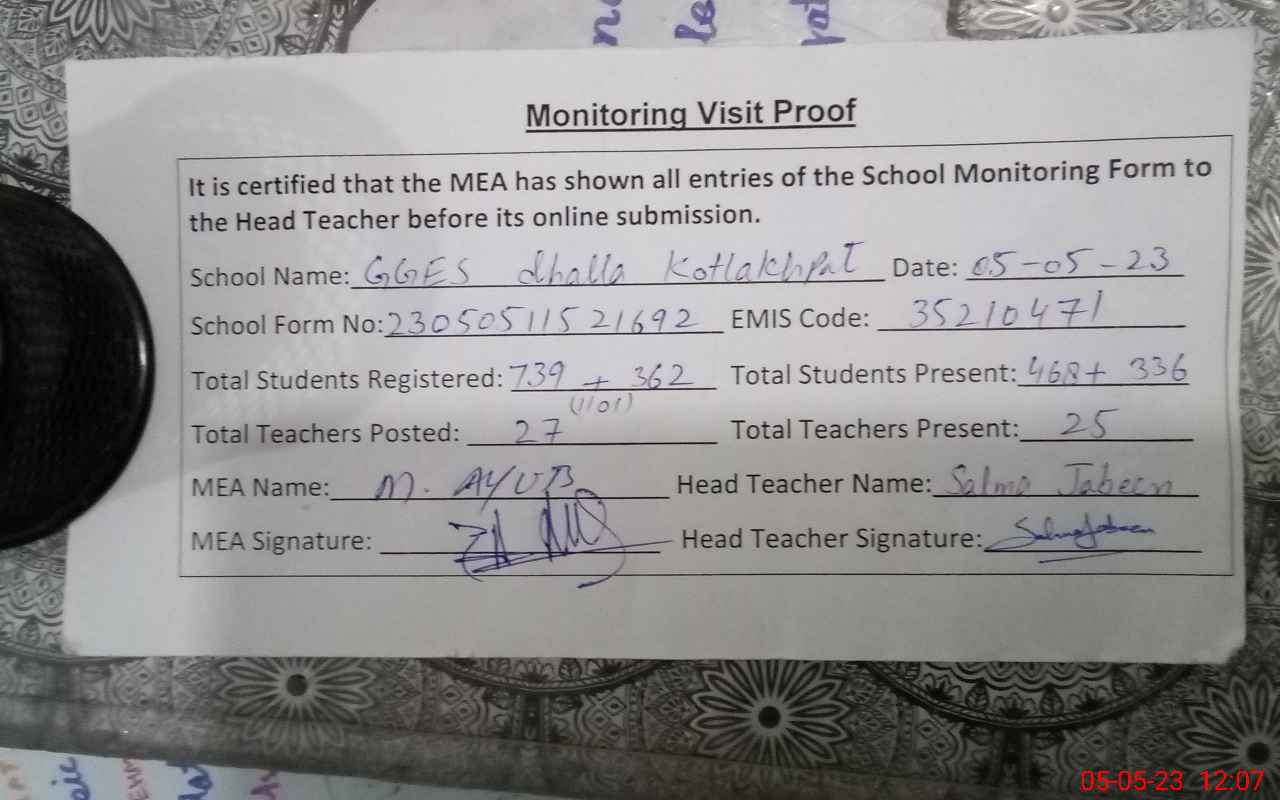 Monitoring Visit Proof
It is certified that the MEA has shown all entries of the School Monitoring Form to
the Head Teacher before its online submission.
School Name: GGES dhalla Kotlakhpat Date: 05-05-23
School Form No: 23050511521692 EMIS Code: 35210471
Total Students Registered: 739 + 362 Total Students Present: 468 + 336
(1101)
Total Teachers Posted: 27 Total Teachers Present: 25
MEA Name: M. AYUB Head Teacher Name: Salma Jabeen
MEA Signature: Head Teacher Signature: Salma Jabeen
05-05-23 12:07